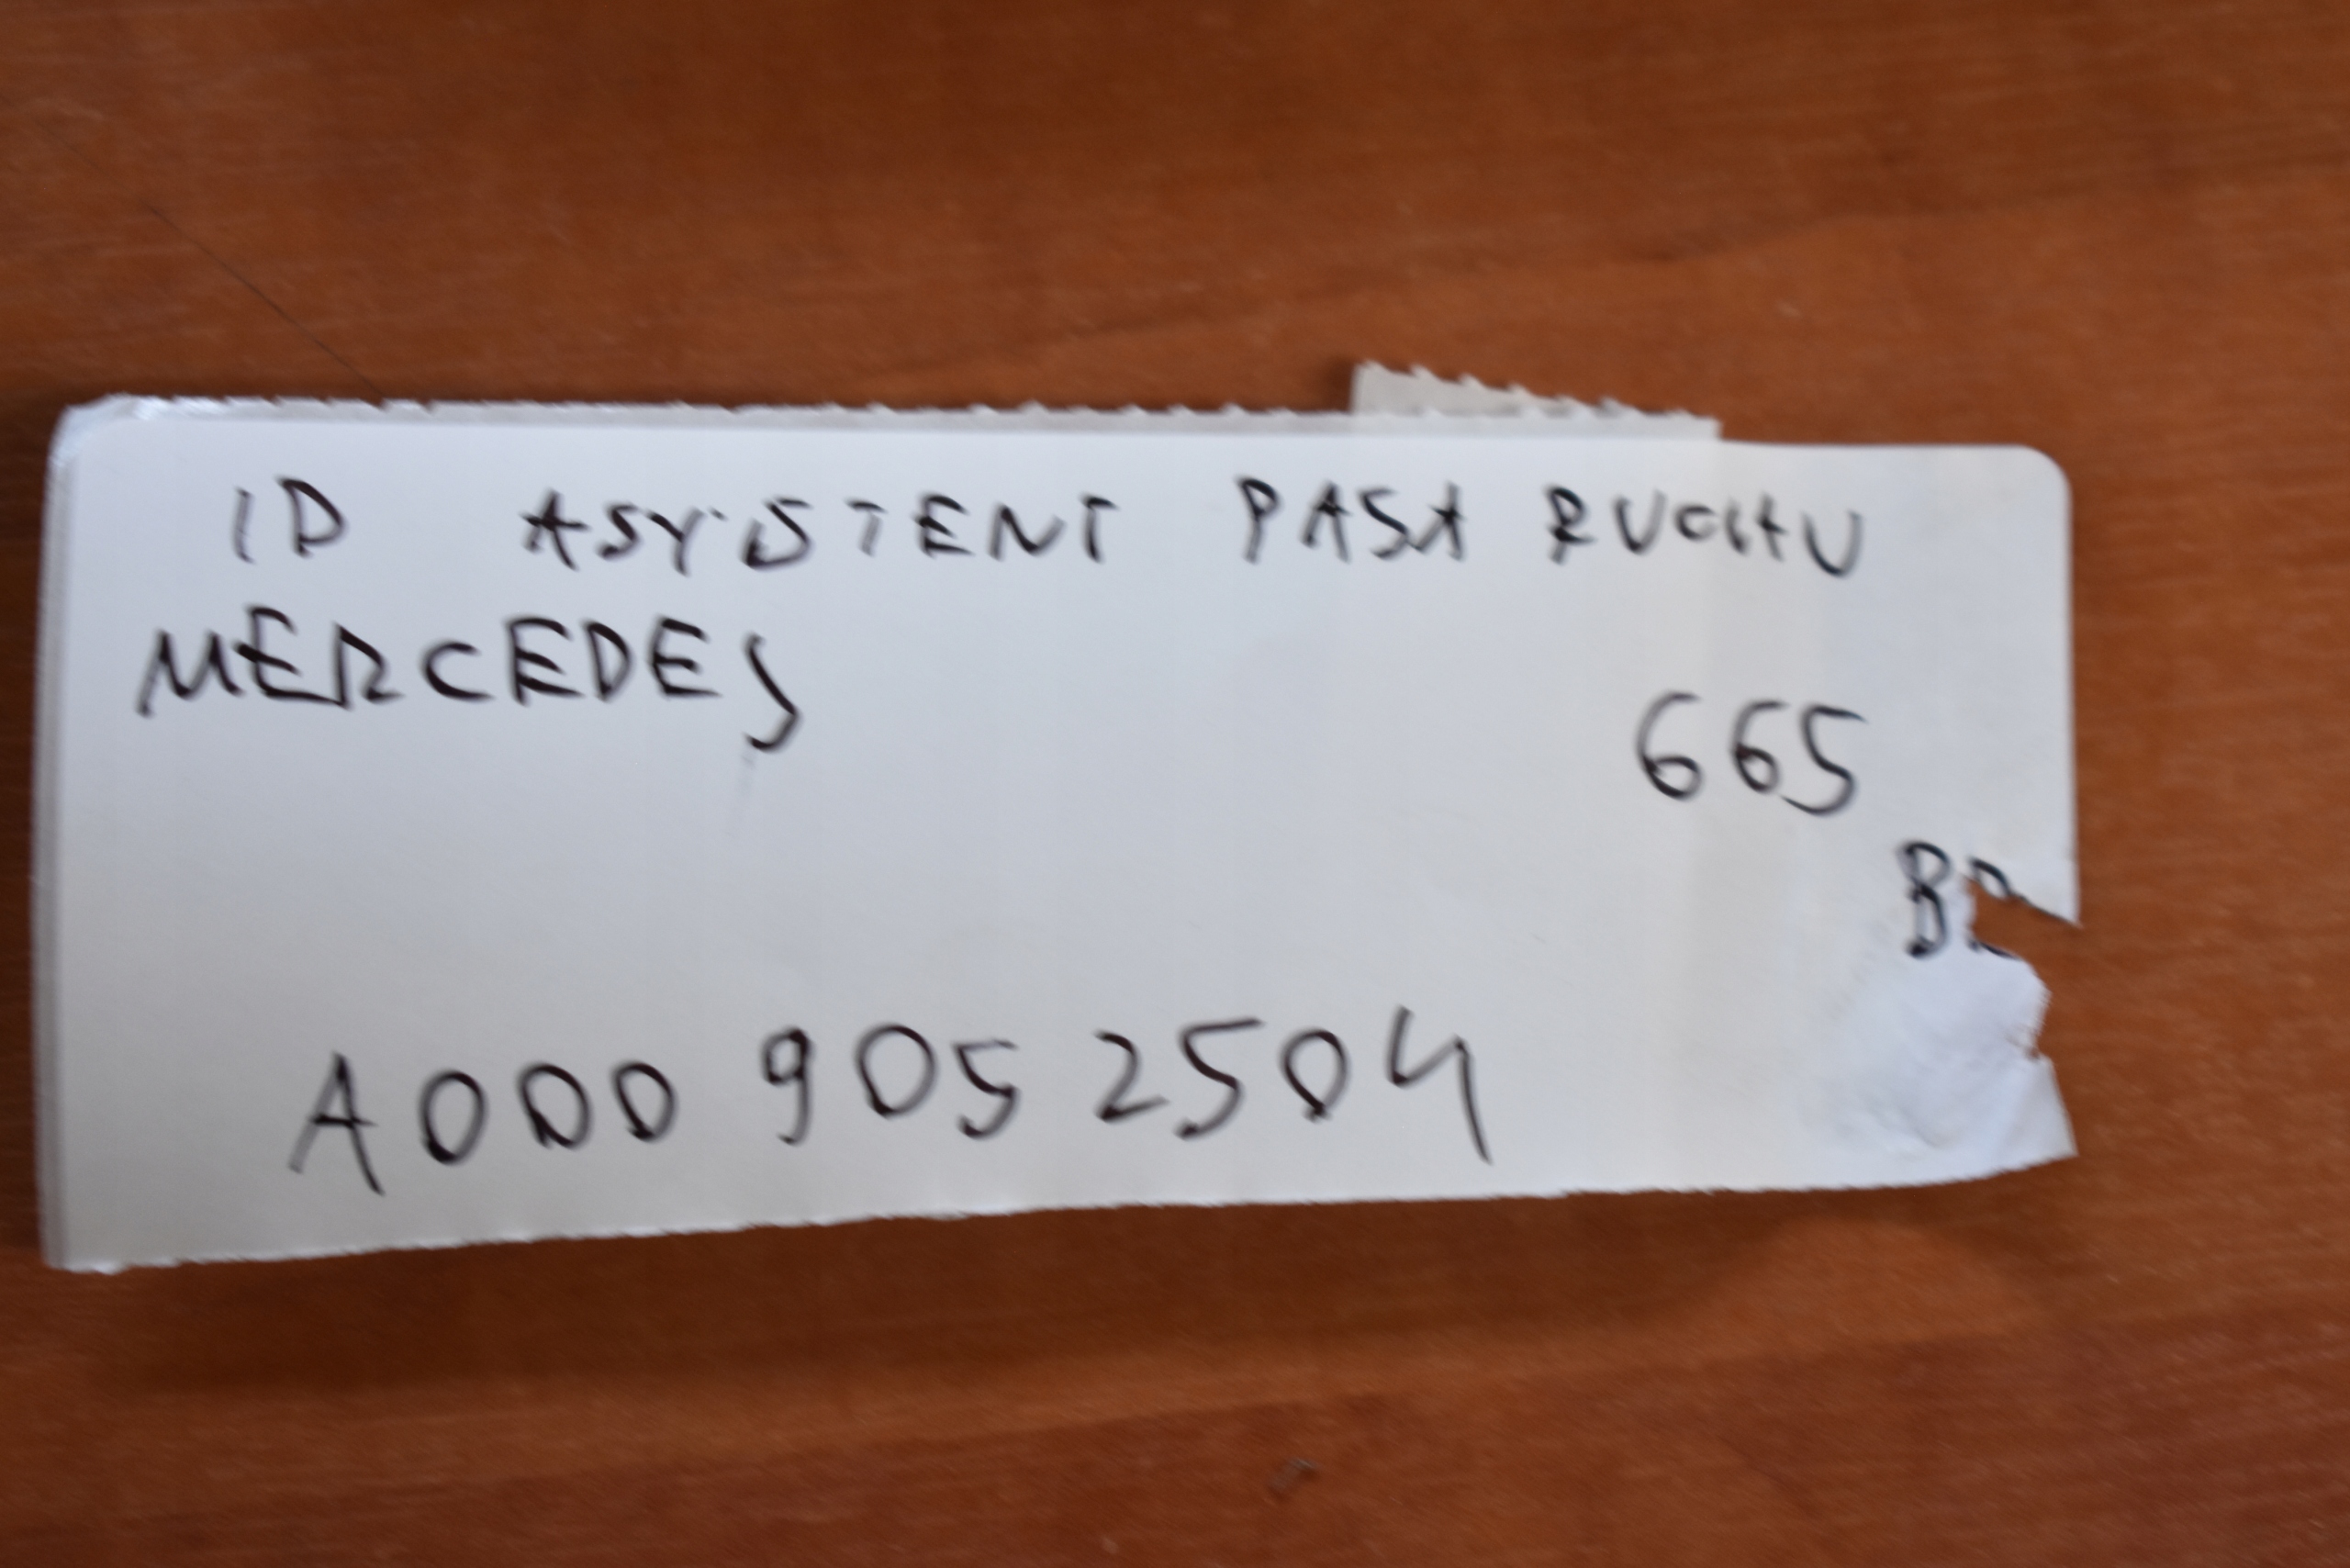 ID ASYSTENT PASA RUCHU
MERCEDES
665
A000 905 2504